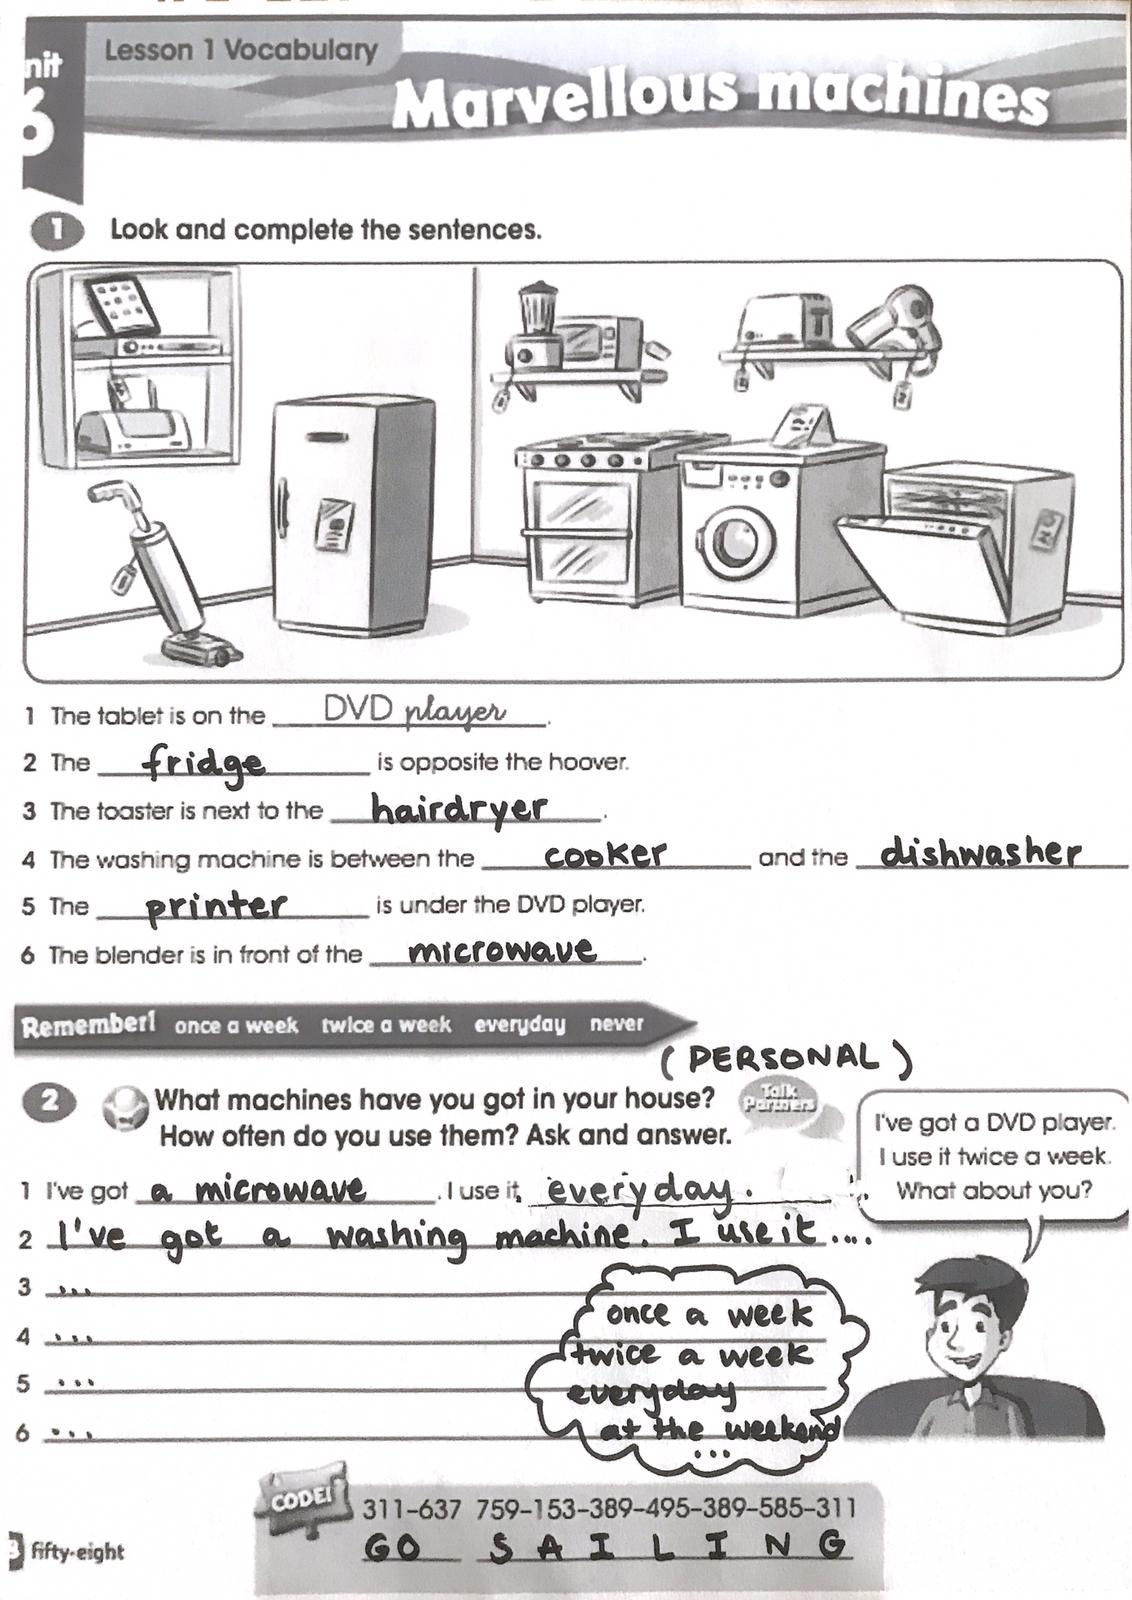 Lesson 1 Vocabulary
nit
6
Marvellous machines
1 Look and complete the sentences.
1 The tablet is on the DVD player.
2 The fridge is opposite the hoover.
3 The toaster is next to the hairdryer.
4 The washing machine is between the cooker and the dishwasher
5 The printer is under the DVD player.
6 The blender is in front of the microwave.
Remember! once a week twice a week everyday never
(PERSONAL)
2 What machines have you got in your house?
How often do you use them? Ask and answer.
Talk
Partners
I've got a DVD player.
I use it twice a week.
What about you?
1 I've got a microwave. I use it everyday.
2 I've got a washing machine. I use it ....
3 ...
4 ...
5 ...
6 ...
once a week
twice a week
everyday
at the weekend
...
CODE! 311-637 759-153-389-495-389-585-311
GO SAILING
fifty-eight